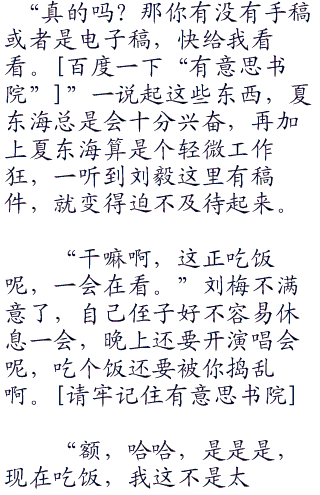 “真的吗？那你有没有手稿
或者是电子稿，快给我看
看。[百度一下“有意思书
院”]”一说起这些东西，夏
东海总是会十分兴奋，再加
上夏东海算是个轻微工作
狂，一听到刘毅这里有稿
件，就变得迫不及待起来。
“干嘛啊，这正吃饭
呢，一会在看。”刘梅不满
意了，自己侄子好不容易休
息一会，晚上还要开演唱会
呢，吃个饭还要被你捣乱
啊。[请牢记住有意思书院]
“额，哈哈，是是是，
现在吃饭，我这不是太